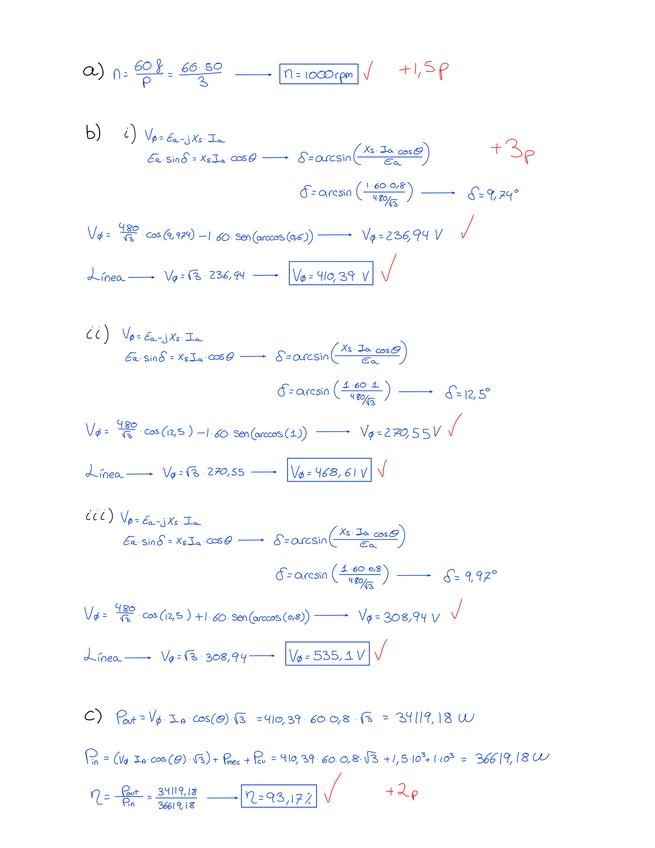 a) n = 60f/P = 60·50/3 → n = 1000rpm ✓ +1,5p
b) i) Vø = Ea - jXs Ia
Ea·sinδ = Xs Ia·cosθ → δ = arcsin(Xs·Ia·cosθ/Ea) +3p
δ = arcsin(1·60·0,8/480/√3) → δ = 9,74°
Vø = 480/√3 · cos(9,974) - 1·60·sen(arccos(0,6)) → Vø = 236,94 V ✓
Línea → Vø = √3·236,94 → Vø = 410,39 V ✓
ii) Vø = Ea - jXs·Ia
Ea·sinδ = Xs Ia·cosθ → δ = arcsin(Xs·Ia·cosθ/Ea)
δ = arcsin(1·60·1/480/√3) → δ = 12,5°
Vø = 480/√3 · cos(12,5) - 1·60·sen(arccos(1)) → Vø = 270,55 V ✓
Línea → Vø = √3·270,55 → Vø = 468,61 V ✓
iii) Vø = Ea - jXs·Ia
Ea·sinδ = Xs Ia·cosθ → δ = arcsin(Xs·Ia·cosθ/Ea)
δ = arcsin(1·60·0,8/480/√3) → δ = 9,97°
Vø = 480/√3 · cos(12,5) + 1·60·sen(arccos(0,8)) → Vø = 308,94 V ✓
Línea → Vø = √3·308,94 → Vø = 535,1 V ✓
c) Pout = Vø·IA·cos(θ)·√3 = 410,39·60·0,8·√3 = 34119,18 W
Pin = (Vø·IA·cos(θ)·√3) + Pmec + Pcu = 410,39·60·0,8·√3 + 1,5·10³ + 1·10³ = 36619,18 W
η = Pout/Pin = 34119,18/36619,18 → η = 93,17% ✓ +2p